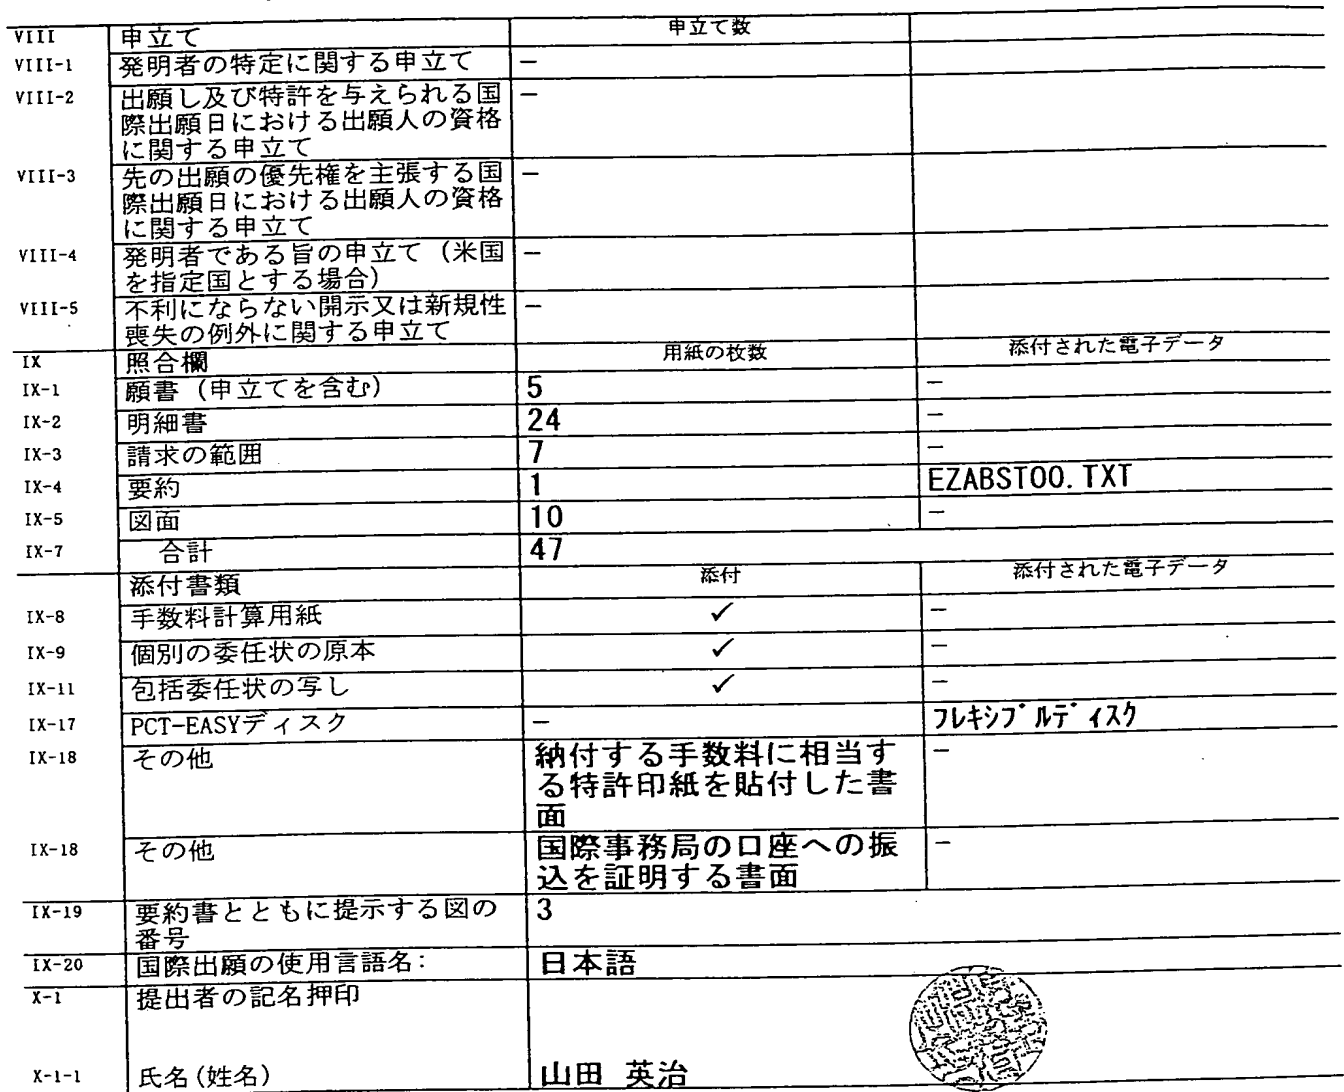 VIII 申立て 申立て数
VIII-1 発明者の特定に関する申立て －
VIII-2 出願し及び特許を与えられる国 －
際出願日における出願人の資格
に関する申立て
VIII-3 先の出願の優先権を主張する国 －
際出願日における出願人の資格
に関する申立て
VIII-4 発明者である旨の申立て（米国 －
を指定国とする場合）
VIII-5 不利にならない開示又は新規性 －
喪失の例外に関する申立て
IX 照合欄 用紙の枚数 添付された電子データ
IX-1 願書（申立てを含む） 5 －
IX-2 明細書 24 －
IX-3 請求の範囲 7 －
IX-4 要約 1 EZABST00.TXT
IX-5 図面 10 －
IX-7 合計 47
添付書類 添付 添付された電子データ
IX-8 手数料計算用紙 ✓ －
IX-9 個別の委任状の原本 ✓ －
IX-11 包括委任状の写し ✓ －
IX-17 PCT-EASYディスク － ﾌﾚｷｼﾌﾞﾙﾃﾞｨｽｸ
IX-18 その他 納付する手数料に相当す －
る特許印紙を貼付した書
面
IX-18 その他 国際事務局の口座への振 －
込を証明する書面
IX-19 要約書とともに提示する図の 3
番号
IX-20 国際出願の使用言語名: 日本語
X-1 提出者の記名押印
X-1-1 氏名(姓名) 山田 英治